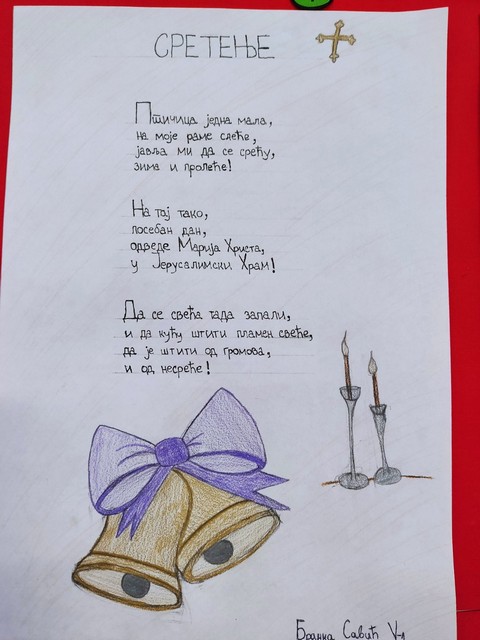 СРЕТЕЊЕ
Птичица једна мала,
на моје раме слеће,
јавља ми да се срећу,
зима и пролеће!
На тај тако,
посебан дан,
одведе Марија Христа,
у Јерусалимски Храм!
Да се свећа тада запали,
и да кућу штити пламен свеће,
да је штити од громова,
и од несреће!
Бранка Савић